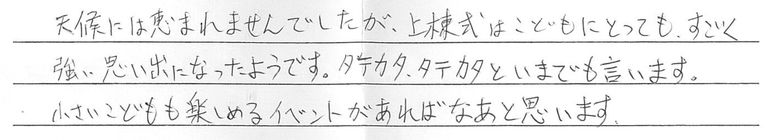 天候には恵まれませんでしたが、上棟式はこどもにとっても、すごく
強い思い出になったようです。タテカタ、タテカタといまでも言います。
小さいこどもも楽しめるイベントがあればなあと思います。